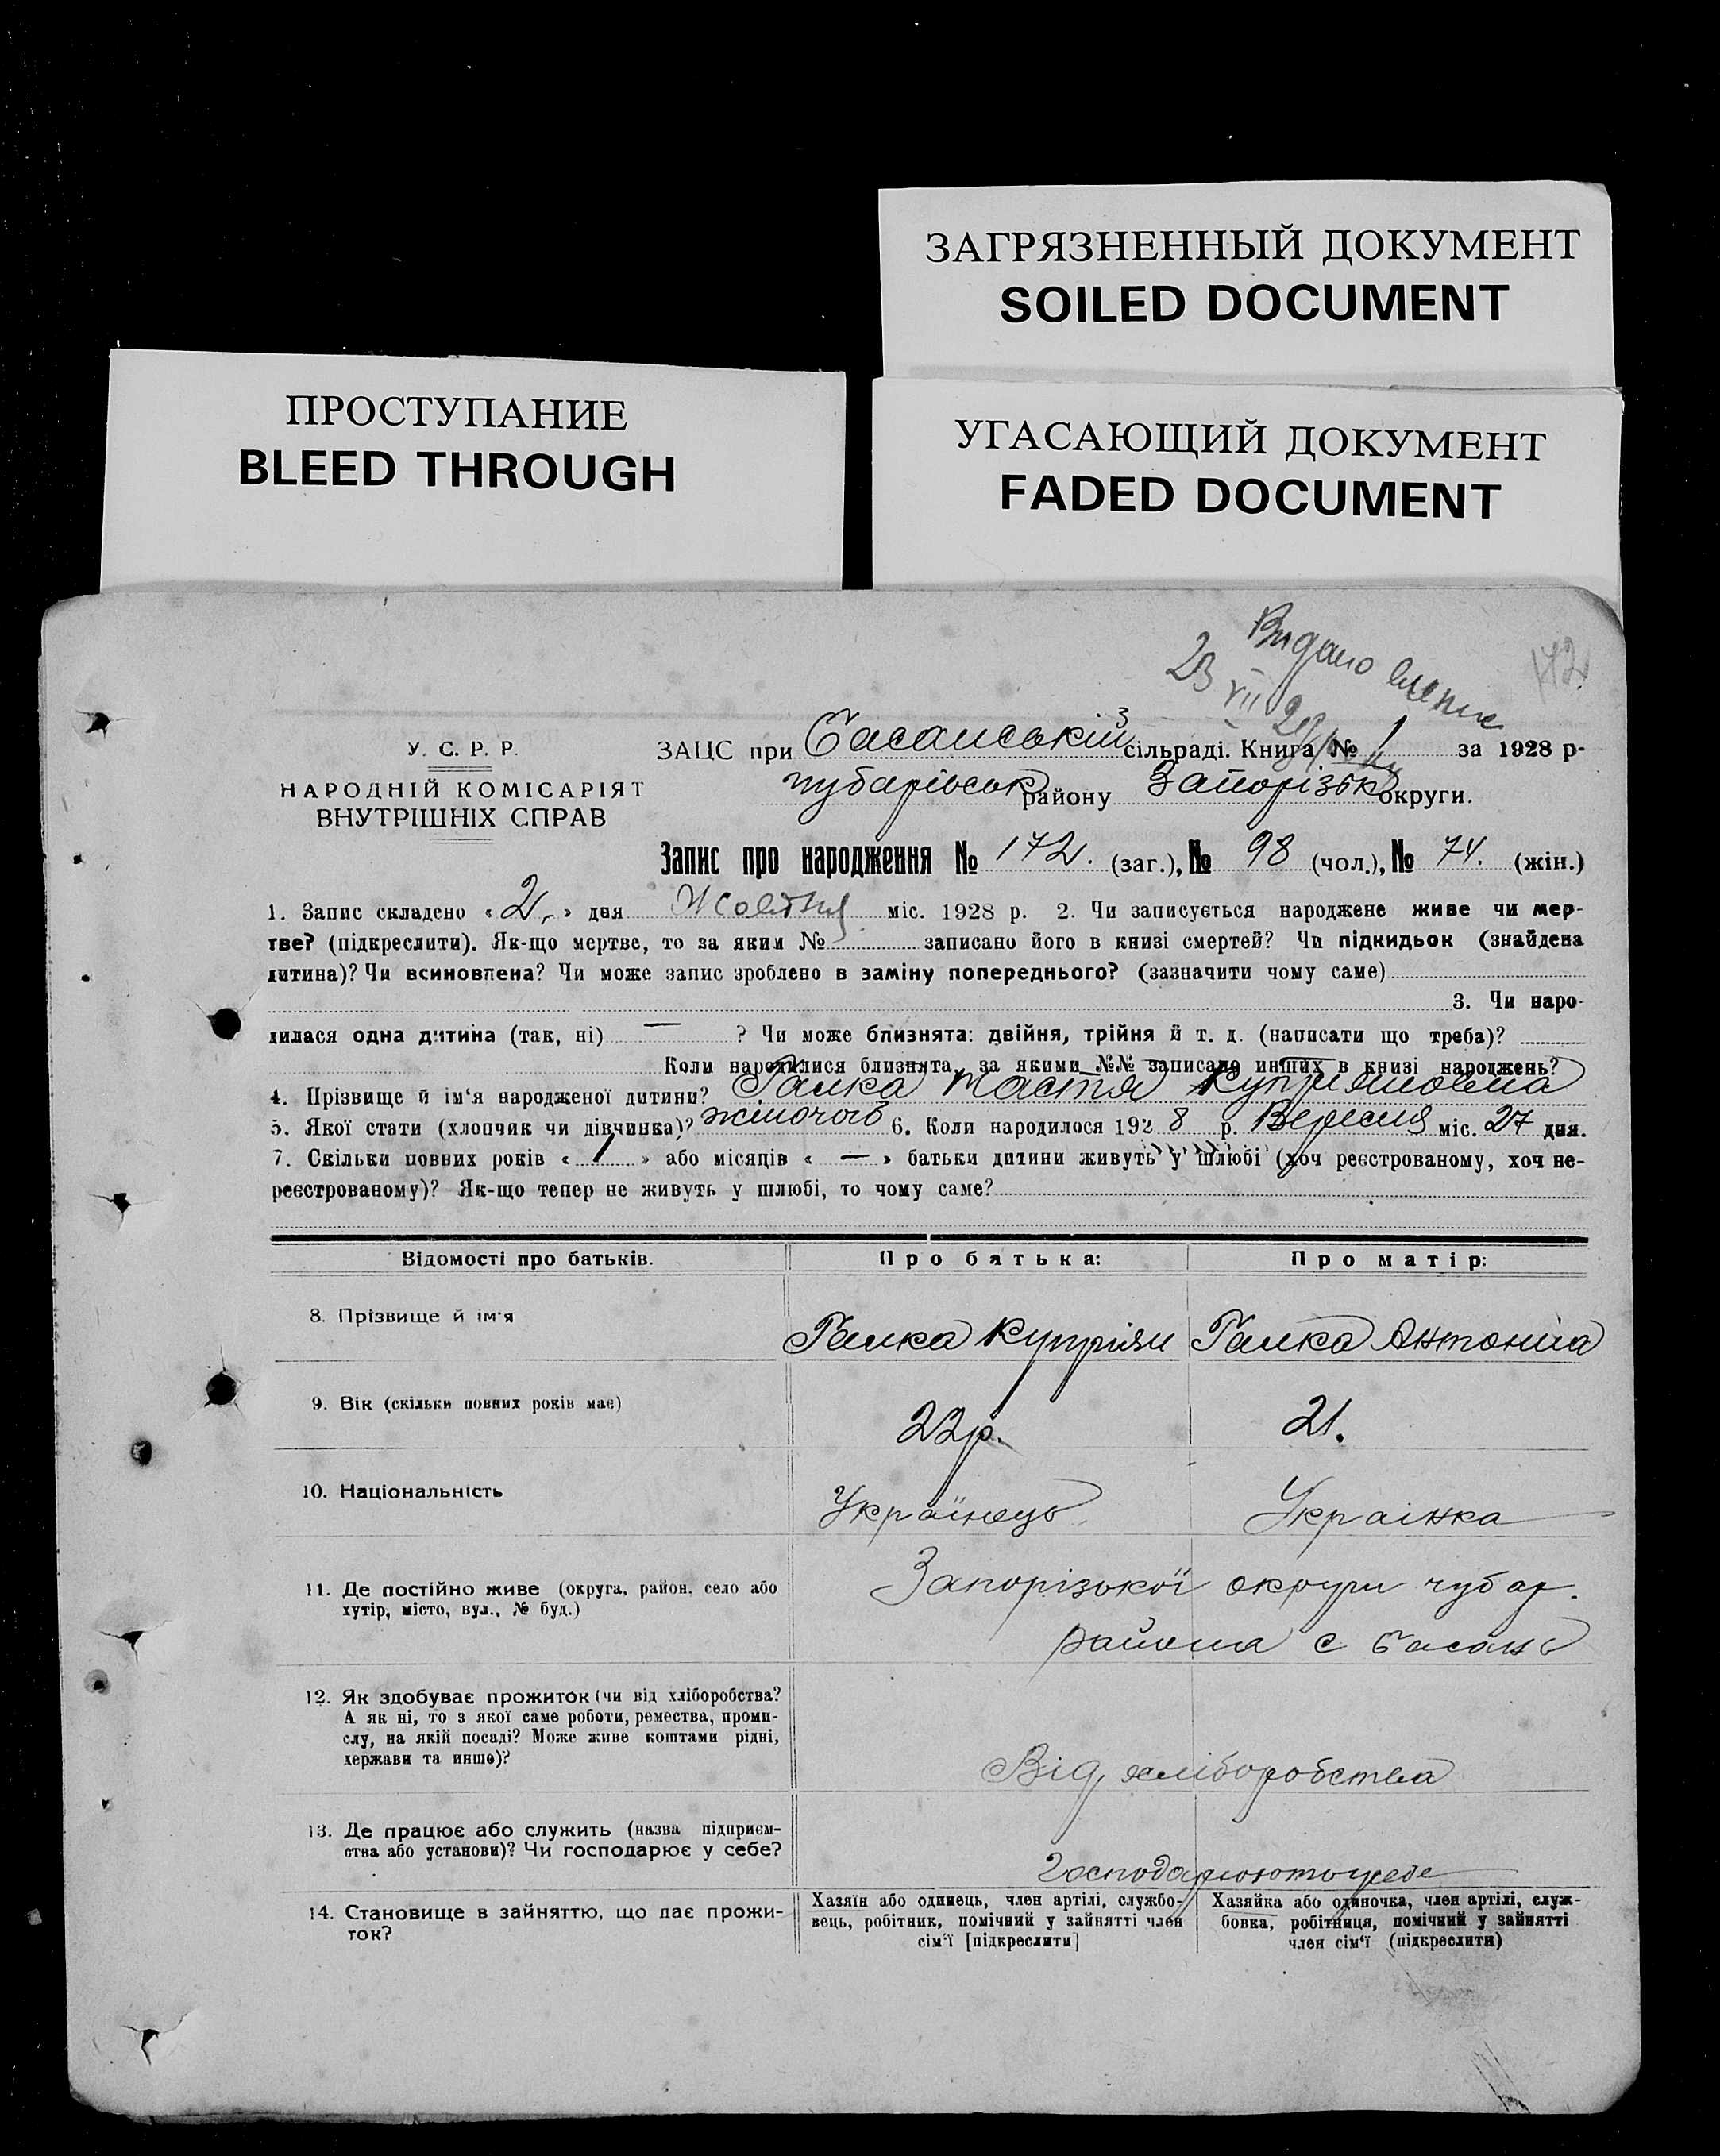 ЗАГРЯЗНЕННЫЙ ДОКУМЕНТ
SOILED DOCUMENT
ПРОСТУПАНИЕ
BLEED THROUGH
УГАСАЮЩИЙ ДОКУМЕНТ
FADED DOCUMENT
Видано
23 VII
172
У. С. Р. Р.
НАРОДНІЙ КОМІСАРІЯТ
ВНУТРІШНІХ СПРАВ
ЗАЦС при Басанській сільраді. Книга № 1 за 1928 р-
чубарівськ району Запорізьк округи.
Запис про народження № 172. (заг.), № 98 (чол.), № 74. (жін.)
1. Запис складено «2» дня Жовтня міс. 1928 р. 2. Чи записується народжене живе чи мер-
тве? (підкреслити). Як-що мертве, то за яким № записано його в книзі смертей? Чи підкидьок (знайдена
дитина)? Чи всиновлена? Чи може запис зроблено в заміну попереднього? (зазначити чому саме)
3. Чи наро-
дилася одна дитина (так, ні) — ? Чи може близнята: двійня, трійня й т. д. (написати що треба)?
Коли народилися близнята, за якими №№ записано инших в книзі народжень?
4. Прізвище й ім'я народженої дитини? Галка Настя Купріяновна
5. Якої стати (хлопчик чи дівчинка)? жіночоі 6. Коли народилося 1928 р. Вересня міс. 27 дня.
7. Скільки повних років «1» або місяців «—» батьки дитини живуть у шлюбі (хоч реєстрованому, хоч не-
реєстрованому)? Як-що тепер не живуть у шлюбі, то чому саме?
Відомості про батьків. Про батька: Про матір:
8. Прізвище й ім'я Галка Купріян Галка Антоніна
9. Вік (скільки повних років має) 22р. 21.
10. Національність Українець Украінка
11. Де постійно живе (округа, район, село або
хутір, місто, вул., № буд.)
Запорізької округи чубар.
района с Басань
12. Як здобуває прожиток (чи від хліборобства?
А як ні, то з якої саме роботи, ремества, проми-
слу, на якій посаді? Може живе коштами рідні,
держави та инше)?
Від хліборобства
13. Де працює або служить (назва підприєм-
ства або установи)? Чи господарює у себе?
Господарюють у себе
14. Становище в зайняттю, що дає прожи-
ток?
Хазяїн або одинець, член артілі, службо-
вець, робітник, помічний у зайнятті член
сім'ї [підкреслити]
Хазяйка або одиночка, член артілі, служ-
бовка, робітниця, помічний у зайнятті
член сім'ї (підкреслити)